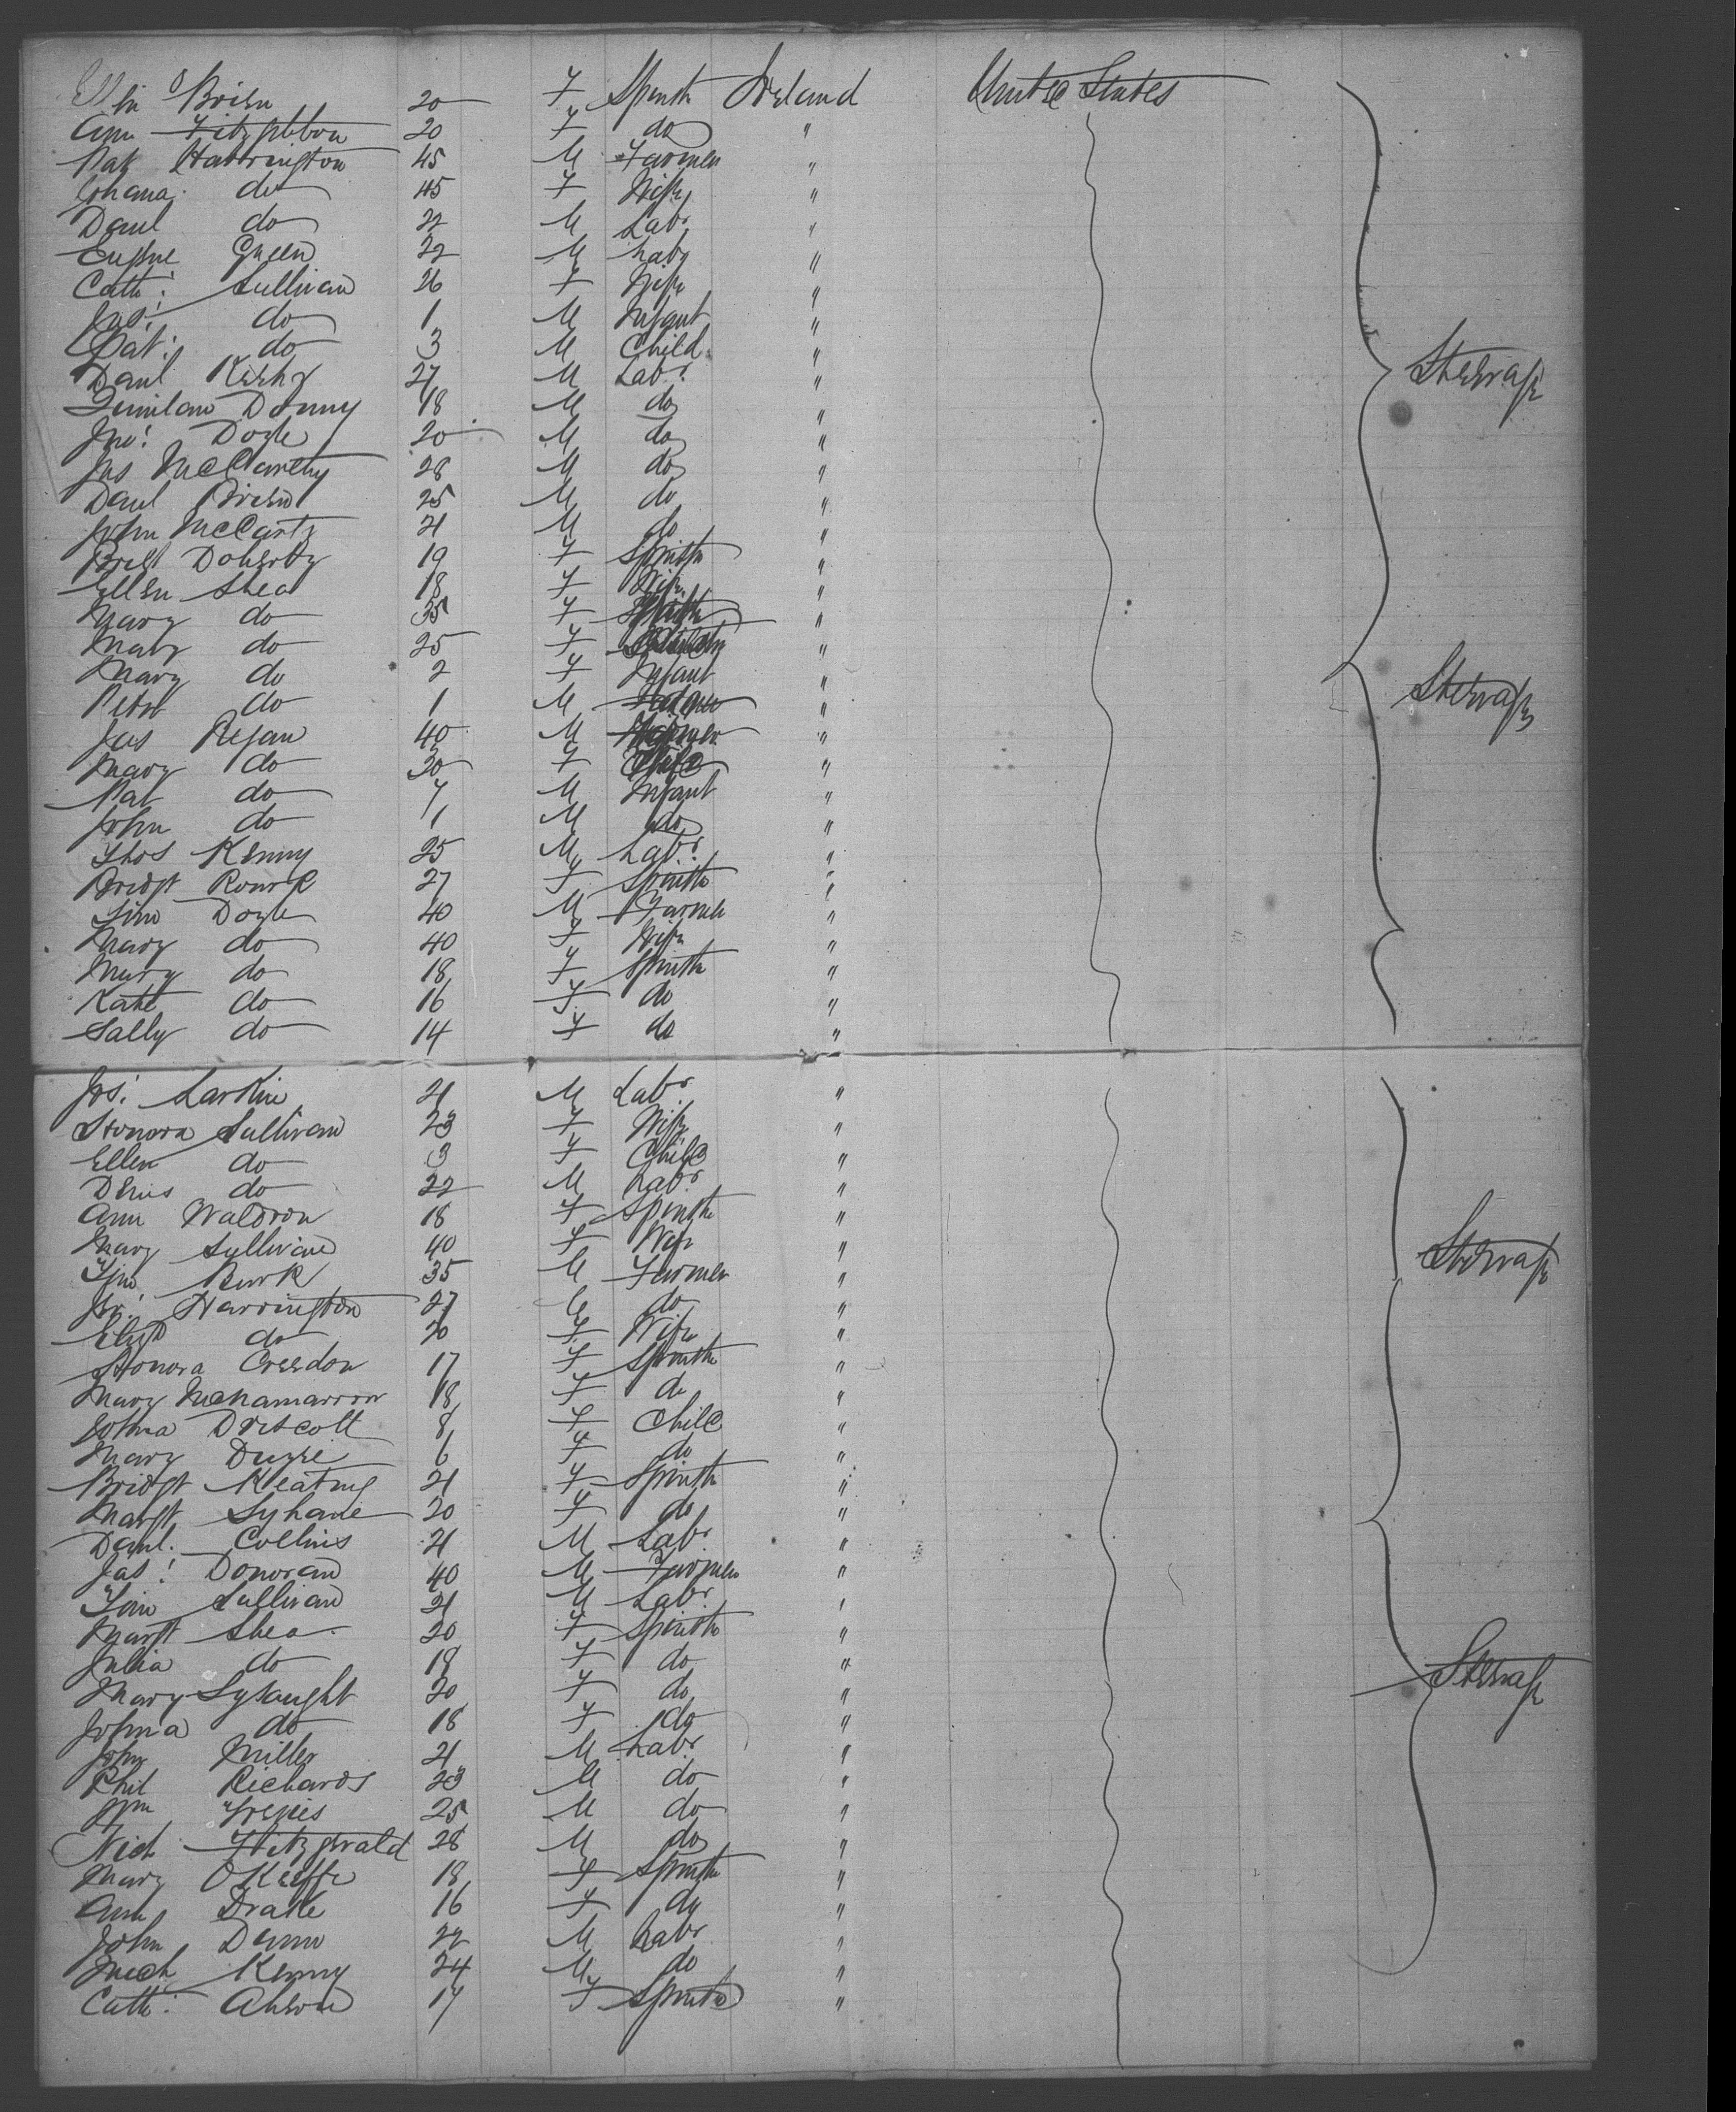 Ellen Brien 20 F Spinstr Ireland United States
Ann Fitzgibbon 20 F do "
Pat Harrington 45 M Farmer "
Johana do 45 F Wife "
Danl do 22 M Labr "
Eugene Green 22 M Labr "
Cath: Sullivan 26 F Wife "
Jas: do 1 M Infant "
Pat: do 3 M Child "
Danl Kirby 27 M Labr "
Steerage
Quinlan Danny 18 M do "
Jno: Doyle 20 M do "
Jas McCarthy 28 M do "
Danl Brien 25 M do "
John McCarty 21 M do "
Bridt Doherty 19 F Spinstr "
Ellen Shea 18 F Wife "
Mary do 35 F "
Mary do 25 F "
Mary do 2 F Infant "
Steerage
Peter do 1 M "
Jas Regan 40 M Farmer "
Mary do 30 F "
Pat do 7 M Infant "
John do 1 M do "
Thos Kenny 25 M Labr "
Bridgt Rourk 27 F Spinstr "
Tim Doyle 40 M Farmer "
Mary do 40 F Wife "
Mary do 18 F Spinstr "
Kate do 16 F do "
Sally do 14 F do "
Jos: Larkin 21 M Labr "
Honora Sullivan 23 F Wife "
Ellen do 3 F Child "
Denis do 22 M Labr "
Ann Waldron 18 F Spinstr "
Mary Sullivan 40 F Wife "
Steerage
Tim Burk 35 M Farmer "
Harrington 27 M do "
Elizt do 20 F Wife "
Honora Creedon 17 F Spinstr "
Mary McNamarrow 18 F do "
Johna Driscoll 8 F Child "
Mary Dwyre 6 F do "
Bridgt Keating 21 F Spinstr "
Margt Syhane 20 F do "
Danl. Collins 21 M Labr "
Jas: Donovan 40 M Farmer "
Tim Sullivan 21 M Labr "
Margt Shea 20 F Spinstr "
Julia do 18 F do "
Mary Lysaught 20 F do "
Steerage
Johna do 18 F do "
John Miller 21 M Labr "
Phil Richards 23 M do "
Wm 25 M do "
Nich Fitzgerald 28 M do "
Mary OKeeffe 18 F Spinstr "
Ann Drake 16 F do "
John Dunn 22 M Labr "
Mich Kenny 24 M do "
Cath: 17 F Spinstr "